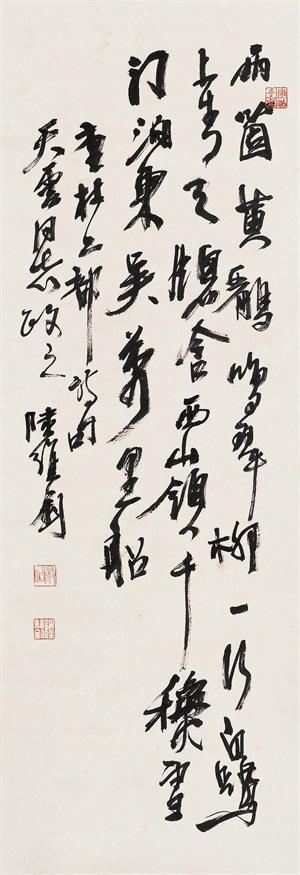 兩箇黄鸝鳴翠柳一行白鷺
上青天牕含西嶺千穐雪
门泊東吴萬里船
書杜工部詩句
天雲同志政之
陸維釗